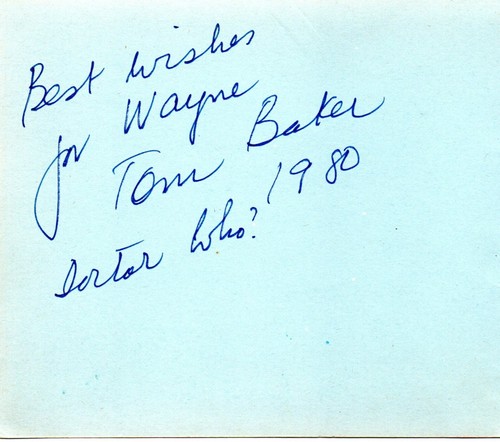 Best wishes
for Wayne
Tom Baker
1980
Doctor Who?